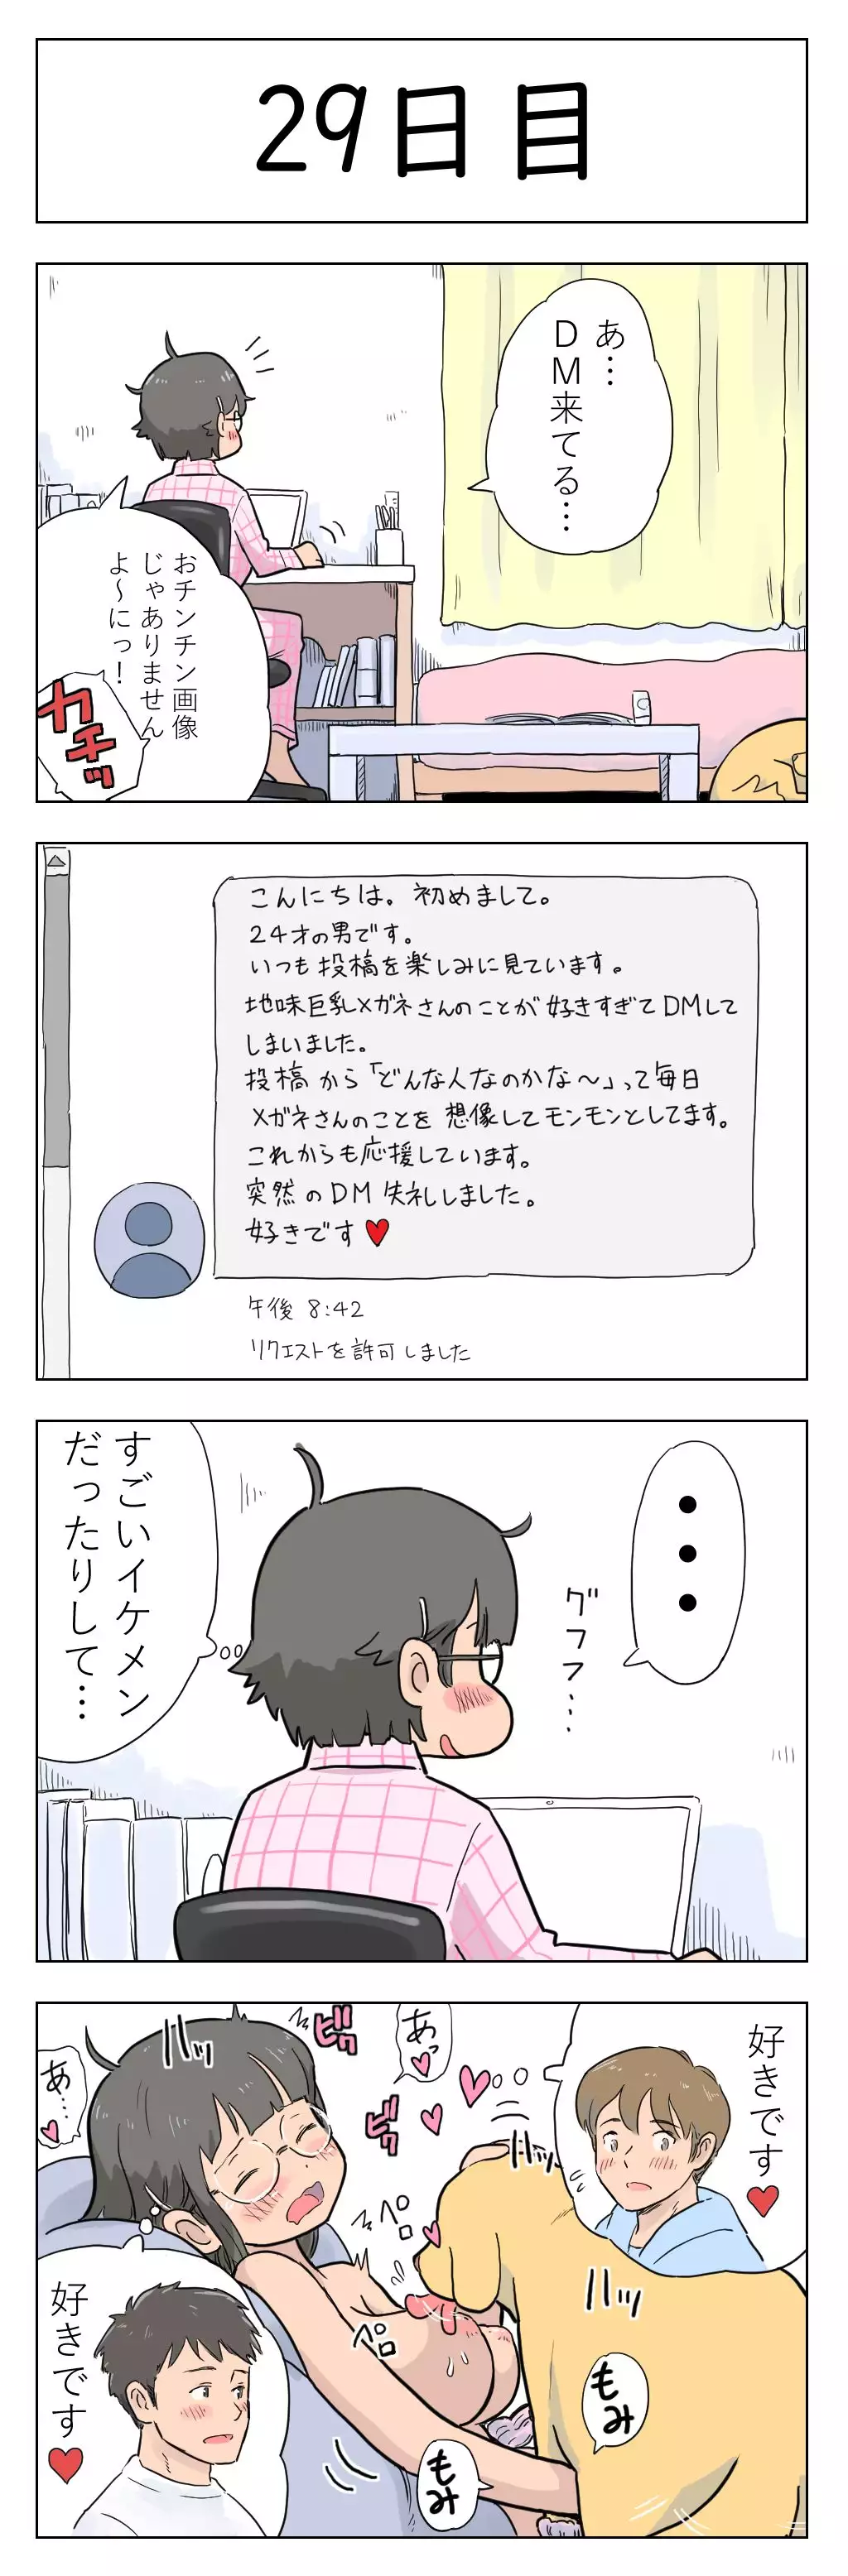 29日目
あ…
DM来てる…
おチンチン画像
じゃありません
よ～にっ！
カチッ
こんにちは。初めまして。
24才の男です。
いつも投稿を楽しみに見ています。
地味巨乳メガネさんのことが好きすぎてDMして
しまいました。
投稿から「どんな人なのかな～」って毎日
メガネさんのことを想像してモンモンとしてます。
これからも応援しています。
突然のDM失礼しました。
好きです♥
午後 8:42
リクエストを許可しました
・・・
グフフ…
すごいイケメン
だったりして…
好きです♥
あっ♥
ビク
ハッ
あ…♥
ビク
ハッ
ペロ
ハッ
ペロ
好きです♥
もみ
もみ